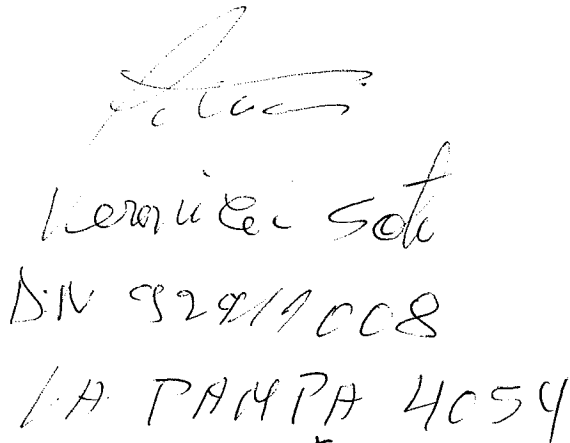 Veronica Soto
DN 92911008
LA PAMPA 4054